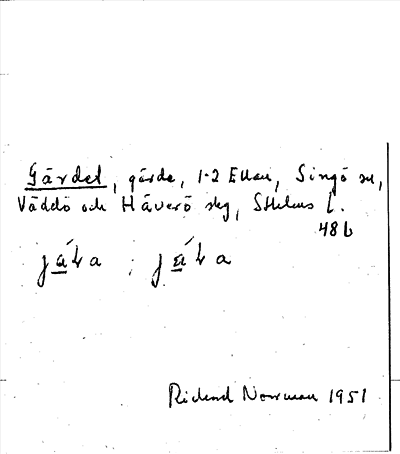 Gärdet, gärde, 1-2 Ellan, Singö sn,
Väddö och Häverö skg, Sthlms l.
48b
Rickard Norrman 1951